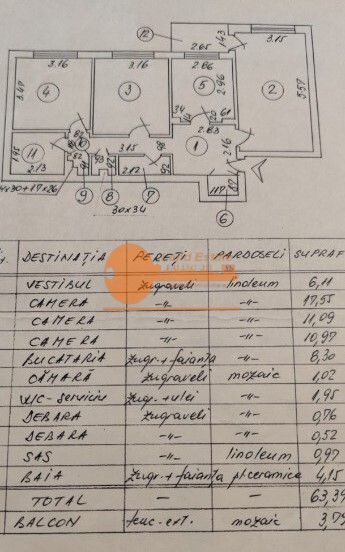 12
2.65
1.43
3.15
3.16
3.16
2.86
3.47
4
3
5
2.96
2
5.57
34
20
61
2.83
1.95
11
3.15
98
1
2.16
2.13
92
2.12
92
4x30+17x26
9
8
7
117
87
6
30x34
DESTINAȚIA PEREȚI PARDOSELI SUPRAF
VESTIBUL zugraveli linoleum 6,11
CAMERA -"- -"- 17,55
CAMERA -"- -"- 11,09
CAMERA -"- -"- 10,97
BUCATARIA zugr.+faianta -"- 8,30
CĂMARĂ zugraveli mozaic 1,02
W/C-serviciu zugr.+ulei -"- 1,95
DEBARA zugraveli -"- 0,76
DEBARA -"- -"- 0,52
SAS -"- linoleum 0,97
BAIA zugr.+faianta pl.ceramica 4,15
TOTAL - - 63,39
BALCON tenc.ext. mozaic 3,79